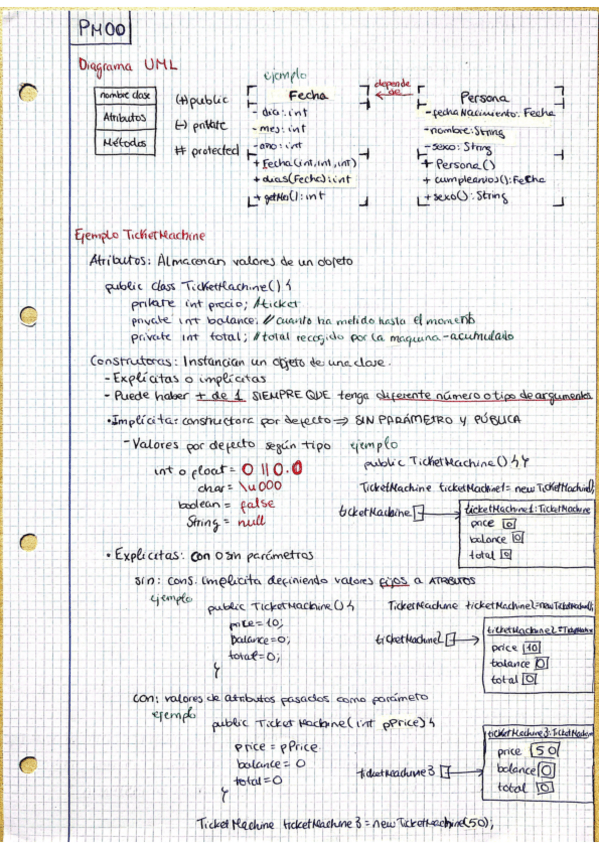 PMOO
Diagrama UML
nombre clase
Atributos
Métodos
(+) public
(-) private
# protected
ejemplo
Fecha
- dia: int
- mes: int
- ano: int
+ Fecha (int, int, int)
+ dias (Fecha): int
+ getMa(): int
depende de
Persona
- fechaNacimiento: Fecha
- nombre: String
- sexo: String
+ Persona ()
+ cumpleanios(): Fecha
+ sexo(): String
Ejemplo TicketMachine
Atributos: Almacenan valores de un objeto
public class TicketMachine() {
private int precio; //ticket
private int balance; // cuanto ha metido hasta el momento
private int total; // total recogido por la maquina - acumulado
Construtoras: Instancian un objeto de una clase.
- Explícitas o implícitas
- Puede haber + de 1 SIEMPRE QUE tenga diferente número o tipo de argumentos
• Implícita: constructora por defecto ⇒ SIN PARÁMETRO Y PÚBLICA
- Valores por defecto según tipo
int o float = 0 || 0.0
char = \u000
boolean = false
String = null
ejemplo
public TicketMachine () { }
TicketMachine ticketMachine1 = new TicketMachine();
ticketMachine
ticketMachine1: TicketMachine
price 0
balance 0
total 0
• Explícitas: con o sin parámetros
sin: cons. implicita definiendo valores fijos a ATRIBUTOS
ejemplo
public TicketMachine () {
price = 10;
balance = 0;
total = 0;
}
TicketMachine ticketMachine2 = new TicketMachine();
ticketMachine2
ticketMachine2: TicketMachine
price 10
balance 0
total 0
con: valores de atributos pasados como parámeto
ejemplo
public Ticket Machine (int pPrice) {
price = pPrice
balance = 0
total = 0
}
ticketmachine3
ticketMachine3: TicketMachine
price 50
balance 0
total 0
Ticket Machine ticketMachine3 = new TicketMachine(50);